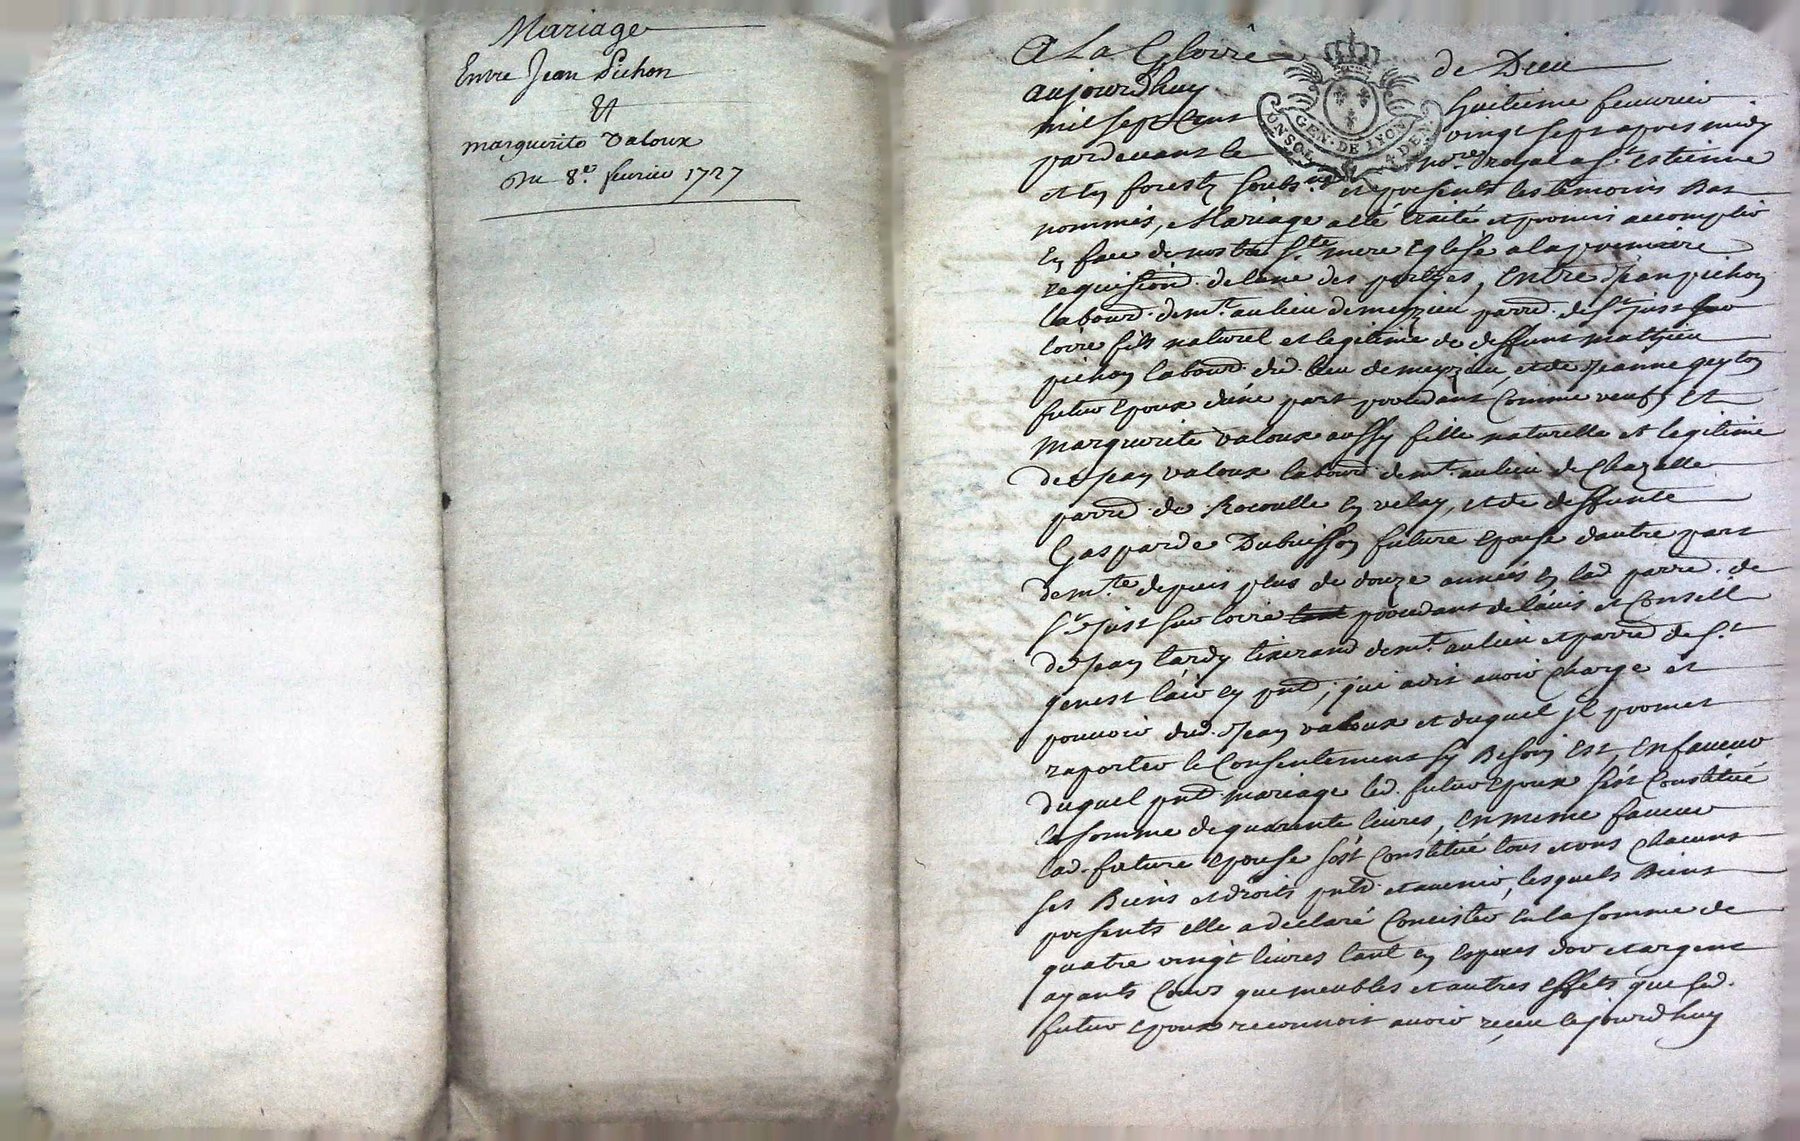 Mariage
Entre Jean Pichon
Et
marguerite Valoux
Du 8.e fevrier 1727
A La Gloire de Dieu
aujourdhuy huitieme feuvrier
mil sept cens vingt sept apres midy
pardevant le no.re royal a S.t Estienne
en forestz soubs.né et presents les temoins Bas
nommés, Mariage a été traité et promis accomplir
en face de nostre S.te mere Eglise a la premiere
requision de lune des parties, Entre Jean pichon
labour.d dem.t au lieu de meyzieu parr.d de S.t just sur
loire fils naturel et legitime de deffunt mathieu
pichon labour.d dud. lieu de meyzieu, et de Jeanne
futur epoux dune part procedant comme veuf, Et
Marguerite Valoux aussy fille naturelle et legitime
de Jean Valoux labour.d dem.t au lieu de Chazelle
parr.d de Rocoulle en velay, et de deffunte
Gasparde Dubuisson future epouse dautre part
dem.te depuis plus de douze années en lad parr.d de
S.t Just sur loire procedant de lavis et Conseil
de Jean tardy tixerand dem.t au lieu et parr.d de S.t
genest en pnt.d; qui a dit avoir charge et
pouvoir dud. Jean Valoux et duquel jl promet
raporter le Consentement sy Besoin Est, En faveur
duquel pnt.d mariage led. futur epoux sest Constitué
la somme de quarante livres, en meme faveur
lad. future epouse sest Constitué tous et uns chacuns
ses Biens et droits pnt.d et avenir, lesquels Biens
presents elle a declaré Concister en la somme de
quatre vingt livres tant en espèces dor et argent
ayants Cours que meubles et autres effets que led.
futur epoux reconnoit avoir reçeu cejourdhuy
GEN. DE LYON
4. DEN.